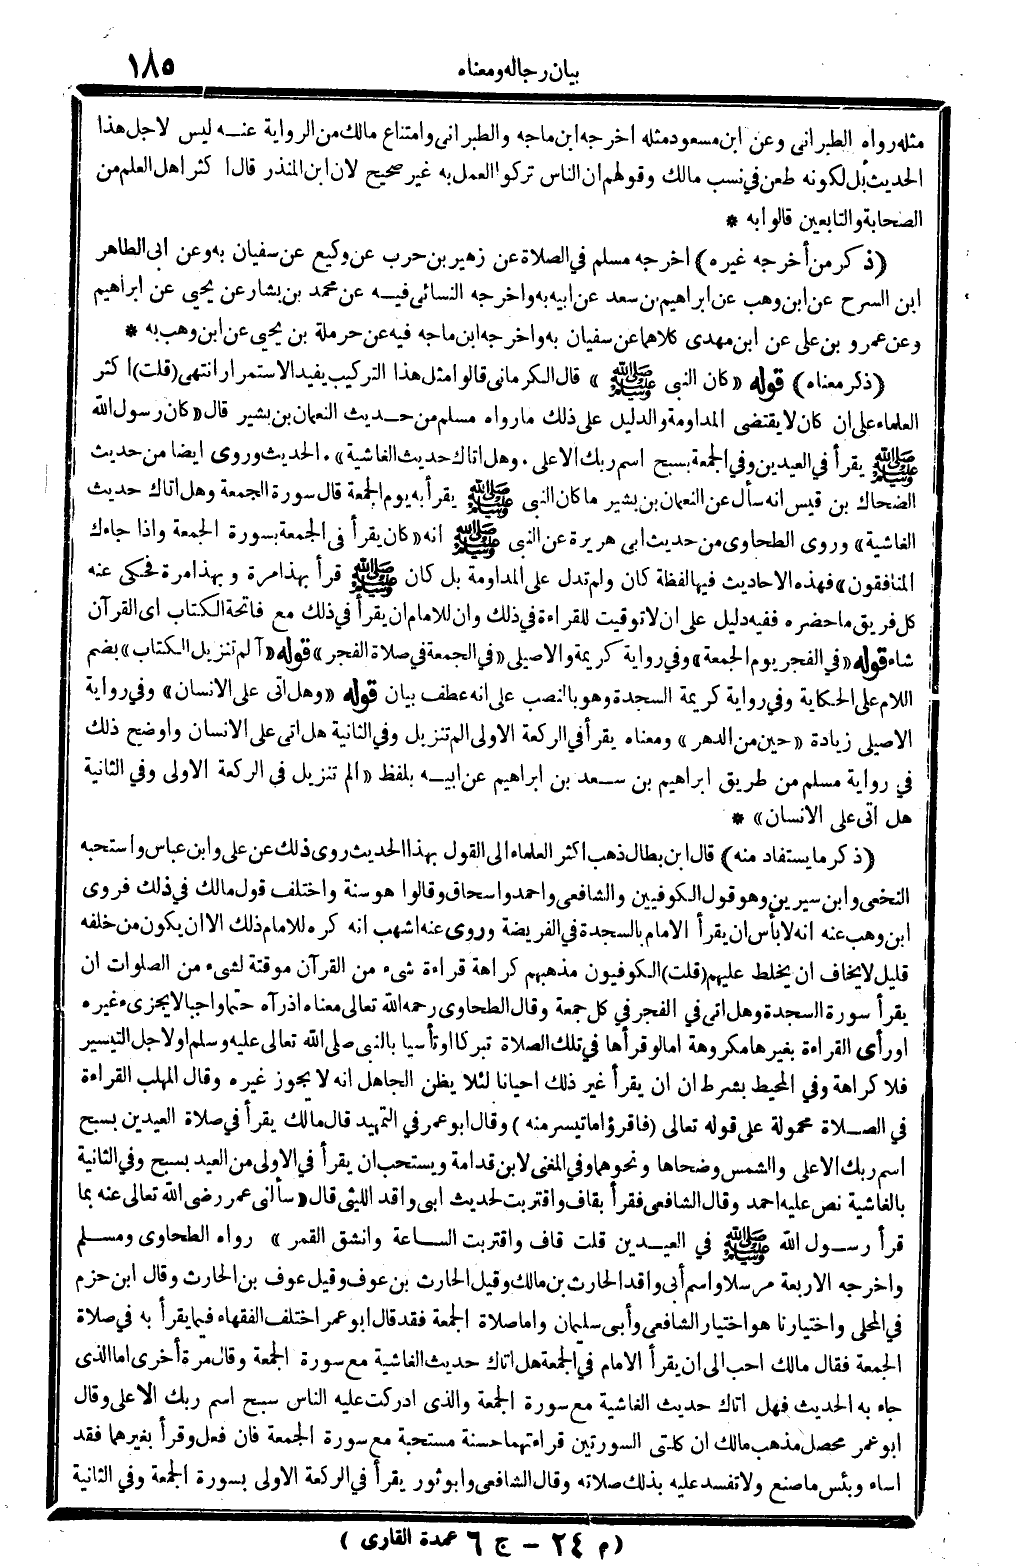 بيان رجاله ومعناه ١٨٥
مثله رواه الطبرانى وعن ابن مسعود مثله اخرجه ابن ماجه والطبرانى وامتناع مالك من الرواية عنه ليس لاجل هذا
الحديث بل لكونه طعن فى نسب مالك وقولهم ان الناس تركوا العمل به غير صحيح لان ابن المنذر قال ا كثر اهل العلم من
الصحابة والتابعين قالوا به *
(ذكر من أخرجه غيره) اخرجه مسلم فى الصلاة عن زهير بن حرب عن وكيع عن سفيان به وعن ابى الطاهر
ابن السرح عن ابن وهب عن ابراهيم بن سعد عن ابيه به واخرجه النسائى فيه عن محمد بن بشار عن يحيى عن ابراهيم
وعن عمرو بن على عن ابن مهدى كلاهما عن سفيان به واخرجه ابن ماجه فيه عن حرملة بن يحيى عن ابن وهب به *
(ذكر معناه) قوله «كان النبى ﷺ» قال الكرمانى قالوا مثل هذا التركيب يفيد الاستمرار انتهى (قلت) اكثر
العلماء على ان كان لا يقتضى المداومة والدليل على ذلك ما رواه مسلم من حديث النعمان بن بشير قال «كان رسول الله
ﷺ يقرأ فى العيدين وفى الجمعة بسبح اسم ربك الاعلى. وهل اتاك حديث الغاشية». الحديث وروى ايضا من حديث
الضحاك بن قيس انه سأل عن النعمان بن بشير ما كان النبى ﷺ يقرأ به يوم الجمعة قال سورة الجمعة وهل اتاك حديث
الغاشية» وروى الطحاوى من حديث ابى هريرة عن النبى ﷺ انه «كان يقرأ فى الجمعة بسورة الجمعة واذا جاءك
المنافقون» فهذه الاحاديث فيها لفظة كان ولم تدل على المداومة بل كان ﷺ قرأ بهذا مرة و بهذا مرة فحكى عنه
كل فريق ما حضره ففيه دليل على ان لا توقيت للقراءة فى ذلك وان للامام ان يقرأ فى ذلك مع فاتحة الكتاب اى القرآن
شاء قوله «فى الفجر يوم الجمعة» وفى رواية كريمة والاصيلى «فى الجمعة فى صلاة الفجر» قوله «آلم تنزيل الكتاب» بضم
اللام على الحكاية وفى رواية كريمة السجدة وهو بالنصب على انه عطف بيان قوله «وهل اتى على الانسان» وفى رواية
الاصيلى زيادة «حين من الدهر» ومعناه يقرأ فى الركعة الاولى الم تنزيل وفى الثانية هل اتى على الانسان واوضح ذلك
في رواية مسلم من طريق ابراهيم بن سعد بن ابراهيم عن ابيه بلفظ «الم تنزيل فى الركعة الاولى وفى الثانية
هل اتى على الانسان» *
(ذكر ما يستفاد منه) قال ابن بطال ذهب اكثر العلماء الى القول بهذا الحديث روى ذلك عن على وابن عباس واستحبه
النخعى وابن سيرين وهو قول الكوفيين والشافعى واحمد واسحاق وقالوا هو سنة واختلف قول مالك فى ذلك فروى
ابن وهب عنه انه لا بأس ان يقرأ الامام بالسجدة فى الفريضة وروى عنه اشهب انه كره للامام ذلك الا ان يكون من خلفه
قليل لا يخاف ان يخلط عليهم (قلت) الكوفيون مذهبهم كراهة قراءة شىء من القرآن موقتة لشىء من الصلوات ان
يقرأ سورة السجدة وهل اتى فى الفجر فى كل جمعة وقال الطحاوى رحمه الله تعالى معناه اذ رآه حتما واجبا لا يجزىء غيره
او رأى القراءة بغيرها مكروهة اما لو قرأها فى تلك الصلاة تبركا او تأسيا بالنبى صلى الله تعالى عليه وسلم او لاجل التيسير
فلا كراهة وفى المحيط بشرط ان يقرأ غير ذلك احيانا لئلا يظن الجاهل انه لا يجوز غيره وقال المهلب القراءة
فى الصلاة محمولة على قوله تعالى (فاقرؤا ما تيسر منه) وقال ابو عمر فى التمهيد قال مالك يقرأ فى صلاة العيدين بسبح
اسم ربك الاعلى والشمس وضحاها ونحوهما وفى المغنى لابن قدامة ويستحب ان يقرأ فى الاولى من العيد بسبح وفى الثانية
بالغاشية نص عليه احمد وقال الشافعى فقرأ بقاف واقتربت لحديث ابى واقد الليثى قال «سألنى عمر رضى الله تعالى عنه بما
قرأ رسول الله ﷺ فى العيدين قلت قاف واقتربت الساعة وانشق القمر» رواه الطحاوى ومسلم
واخرجه الاربعة مرسلا واسم أبى واقد الحارث بن مالك وقيل الحارث بن عوف وقيل عوف بن الحارث وقال ابن حزم
فى المحلى واختيارنا هو اختيار الشافعى وأبى سليمان واما صلاة الجمعة فقد قال ابو عمر اختلف الفقهاء فيما يقرأ به فى صلاة
الجمعة فقال مالك احب الى ان يقرأ الامام فى الجمعة هل اتاك حديث الغاشية مع سورة الجمعة وقال مرة أخرى اما الذى
جاء به الحديث فهل اتاك حديث الغاشية مع سورة الجمعة والذى ادركت عليه الناس سبح اسم ربك الاعلى وقال
ابو عمر محصل مذهب مالك ان كلتى السورتين قراءتهما حسنة مستحبة مع سورة الجمعة فان فعل وقرأ بغيرهما فقد
اساء وبئس ما صنع ولا تفسد عليه بذلك صلاته وقال الشافعى وابو ثور يقرأ فى الركعة الاولى بسورة الجمعة وفى الثانية
(م ٢٤ - ج ٦ عمدة القارى)